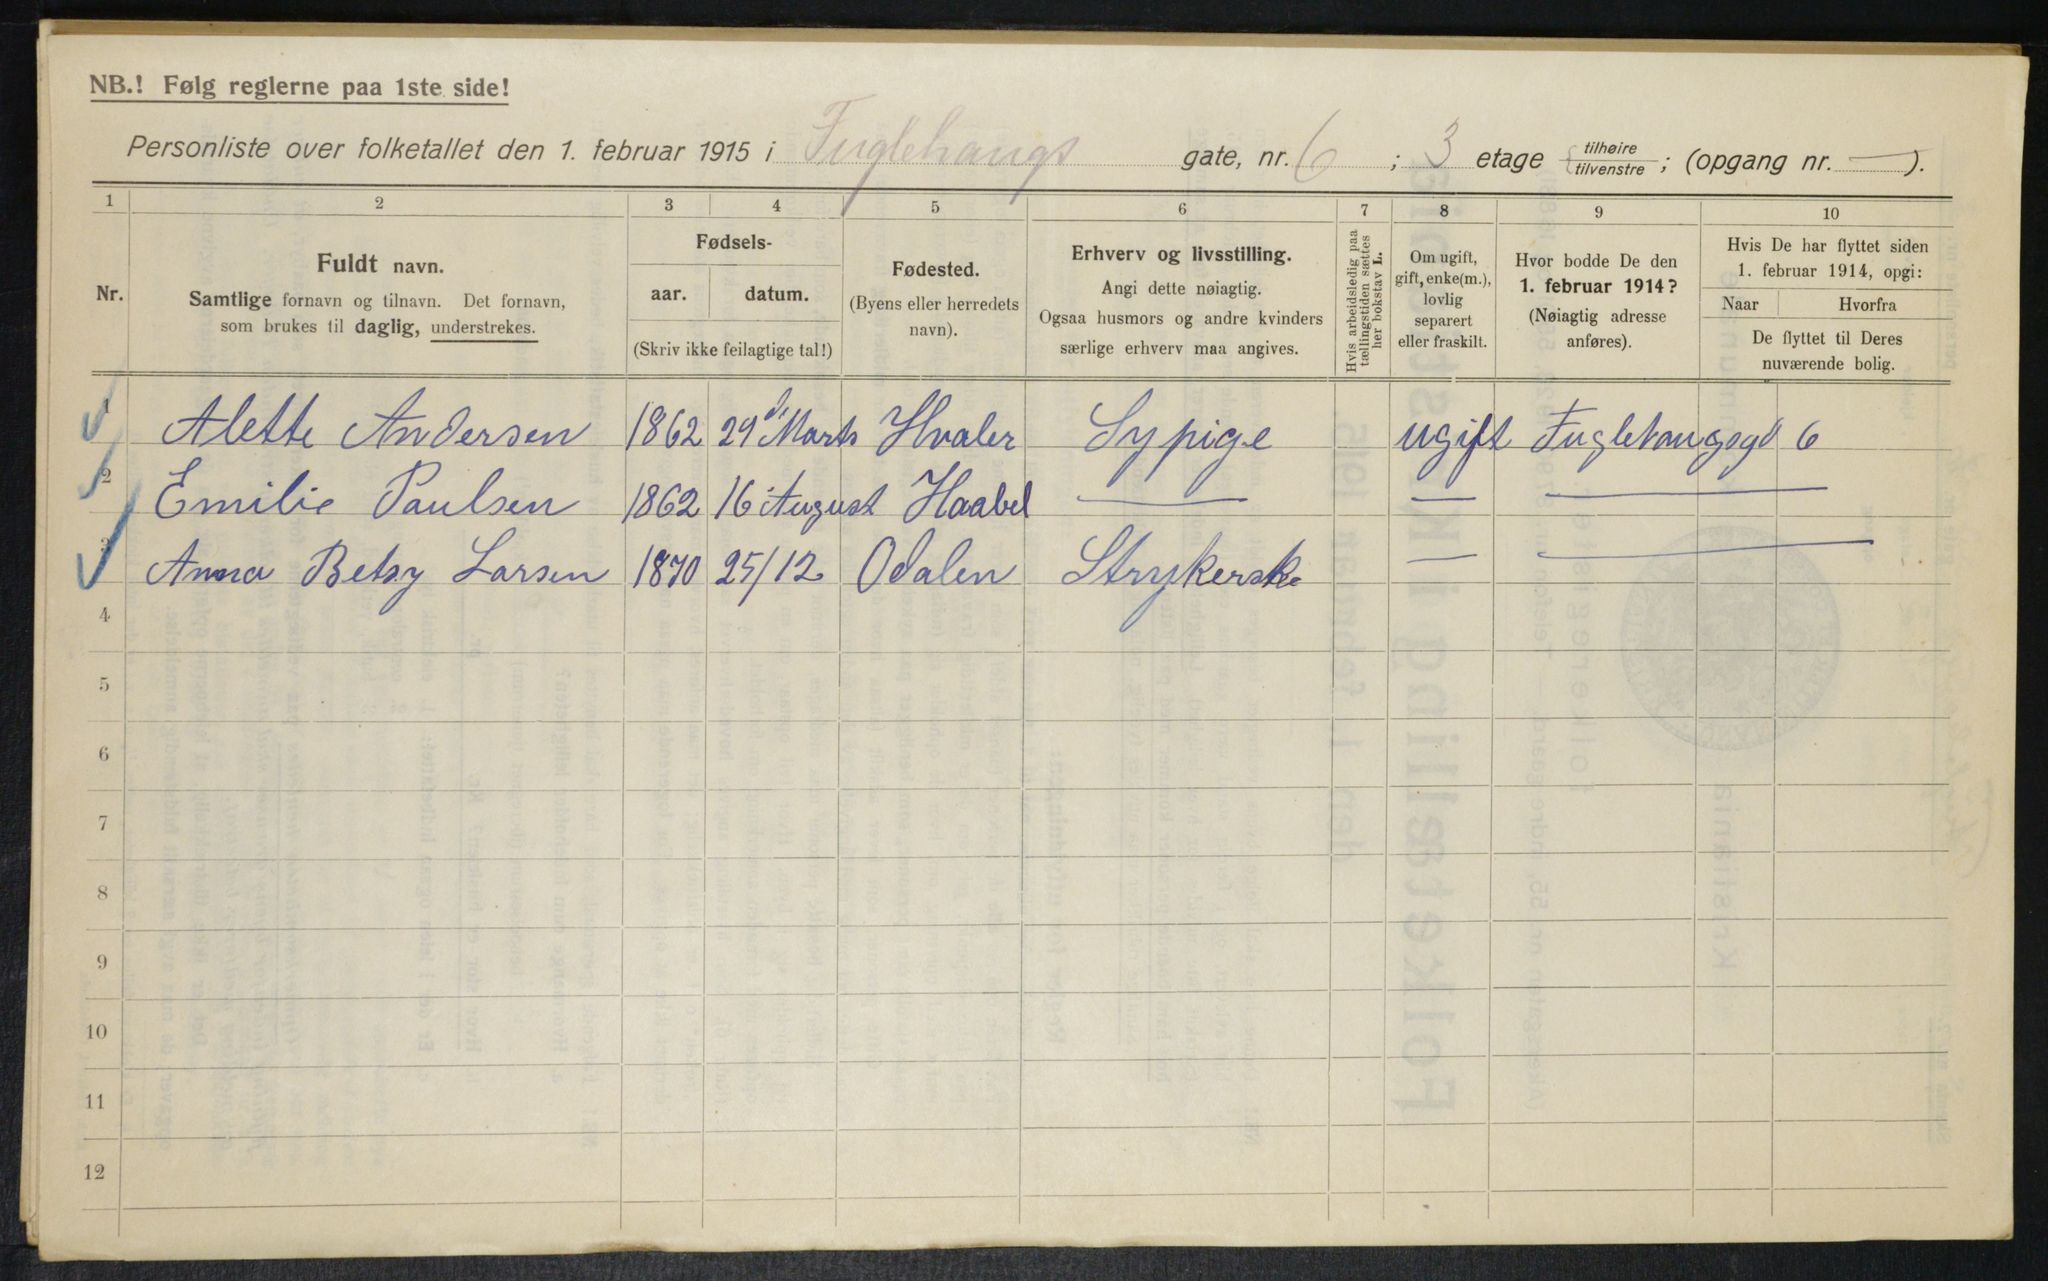 NB.! Følg reglerne paa 1ste side!
Personliste over folketallet den 1. februar 1915 i Fuglehaugs gate, nr. 6 ; 3 etage tilhøire tilvenstre ; (opgang nr. — ).
1 2 3 4 5 6 7 8 9 10
Nr.
Fuldt navn.
Samtlige fornavn og tilnavn. Det fornavn,
som brukes til daglig, understrekes.
Fødsels-
aar. datum.
(Skriv ikke feilagtige tal!)
Fødested.
(Byens eller herredets
navn).
Erhverv og livsstilling.
Angi dette nøiagtig.
Ogsaa husmors og andre kvinders
særlige erhverv maa angives.
Hvis arbeidsledig paa
tællingstiden sættes
her bokstav L.
Om ugift,
gift, enke(m.),
lovlig
separert
eller fraskilt.
Hvor bodde De den
1. februar 1914?
(Nøiagtig adresse
anføres).
Hvis De har flyttet siden
1. februar 1914, opgi:
Naar Hvorfra
De flyttet til Deres
nuværende bolig.
1 Alette Andersen 1862 29d Marts Hvaler Sypige ugift Fuglehaugsgd 6
2 Emilie Paulsen 1862 16 August Haabøl — — —
3 Anna Betsy Larsen 1870 25/12 Odalen Strykerske — —
4
5
6
7
8
9
10
11
12